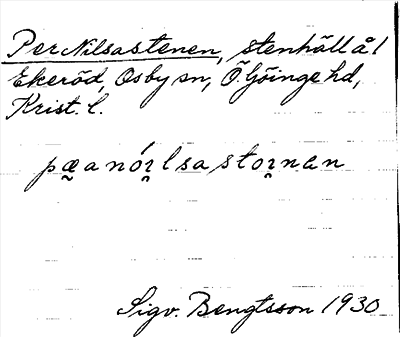 Per Nilsastenen, stenhäll å 1
Ekeröd, Osby sn, Ö. Göinge hd,
Krist. l.
pæ̬anór̬lsastor̬nan
Sigv. Bengtsson 1930